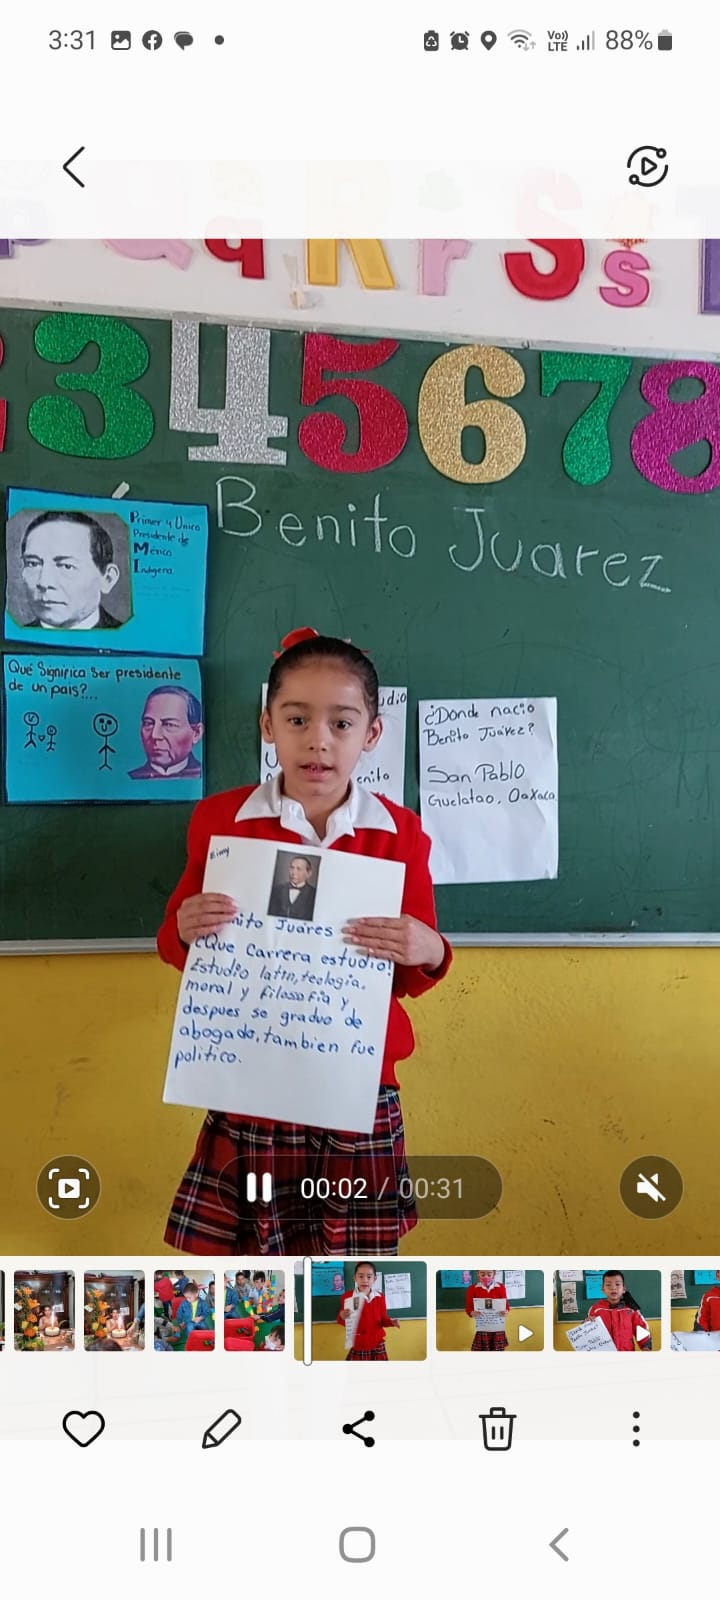 3:31
Vo))
LTE
88%
q
R
r
S
s
3 4 5 6 7 8
Benito Juarez
Primer y Unico
Presidente de
México
Indígena.
Qué Significa Ser presidente
de un pais?...
udio
enito
¿Donde nacio
Benito Juárez?
San Pablo
Guelatao, Oaxaca
nito Juáres
¿Que Carrera estudio!
Estudio latin, teologia,
moral y Filosofia y
despues se graduo de
abogado, tambien fue
politico.
00:02 / 00:31